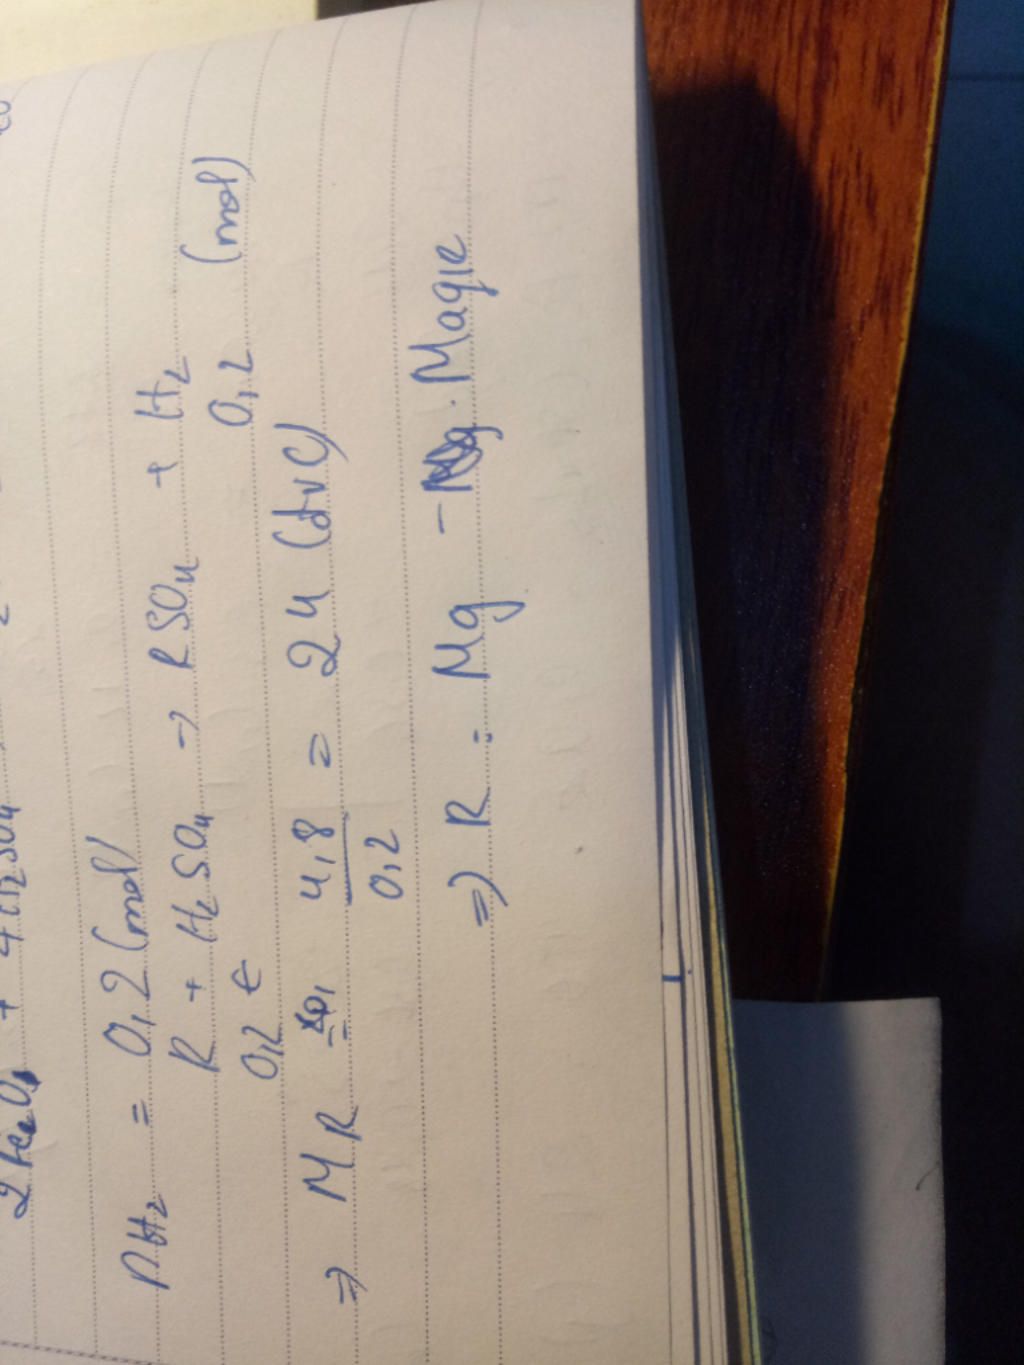 + 4H₂SO₄
nH₂ = 0,2 (mol)
R + H₂SO₄ → RSO₄ + H₂
0,2 ← 0,2 (mol)
⇒ MR = 4,8 / 0,2 = 24 (đvC)
⇒ R : Mg - Magie